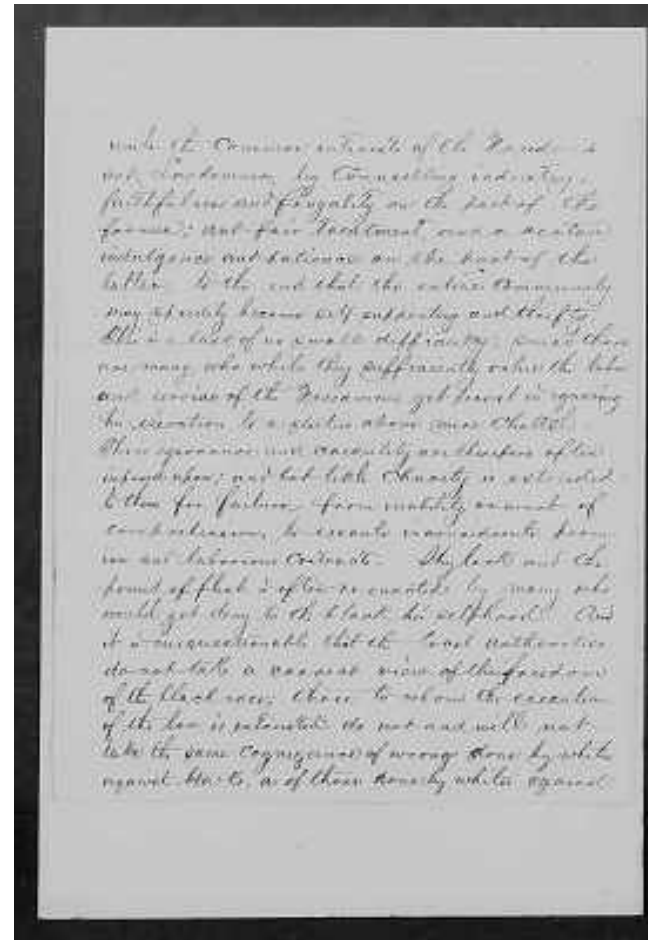 the Common interests of the
not by Counselling industry,
faithfulness and frugality on the part of the
former; and fair treatment, and a certain
indulgence and patience on the part of the
latter. To the end that the entire Community
may speedily become self supporting and thrifty.
This is a task of no small difficulty; since there
are many who while they sufficiently value the labor
and service of the Freedman yet persist in ignoring
his elevation to a above mere Chattel.
Their ignorance and are therefore often
imposed upon; and but little Charity is extended
to them for failure, from inability
to execute
and laborious Contracts. Shylock and the
pound of flesh is often re-enacted by many who
would yet deny to the black his selfhood. And
it is unquestionable that the local authorities
do not take a correct view of the freedom
of the black race; those to whom the execution
of the law is entrusted do not and will not
take the same Cognizance of wrongs done by whites
against blacks, as of those done by whites against